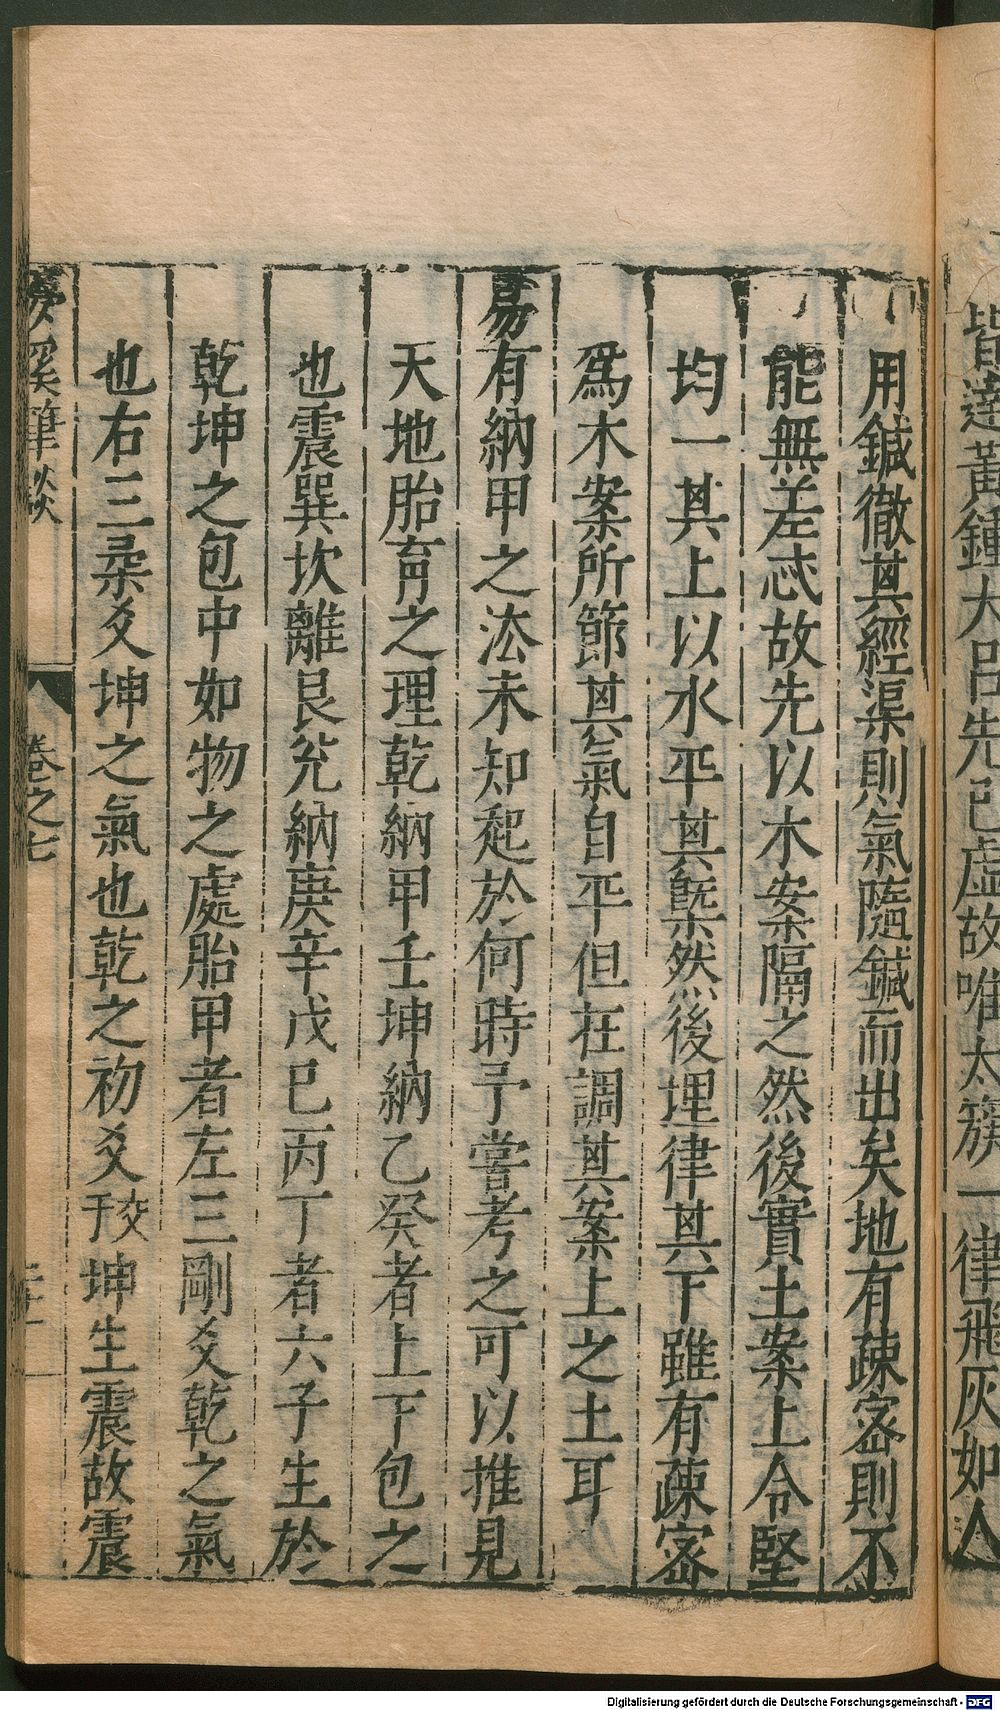 皆達黃鍾大呂先已虛故唯太簇一律飛灰如人
用鍼徹其經渠則氣隨鍼而出矣地有疎密則不
能無差忒故先以木案隔之然後實土案上令堅
均一其上以水平其槩然後埋律其下雖有疎密
爲木案所節其氣自平但在調其案上之土耳
易有納甲之法未知起於何時予嘗考之可以推見
天地胎育之理乾納甲壬坤納乙癸者上下包之
也震巽坎離艮兌納庚辛戊己丙丁者六子生於
乾坤之包中如物之處胎甲者左三剛爻乾之氣
也右三柔爻坤之氣也乾之初爻交于坤生震故震
夢溪筆談
卷之七
Digitalisierung gefördert durch die Deutsche Forschungsgemeinschaft - DFG